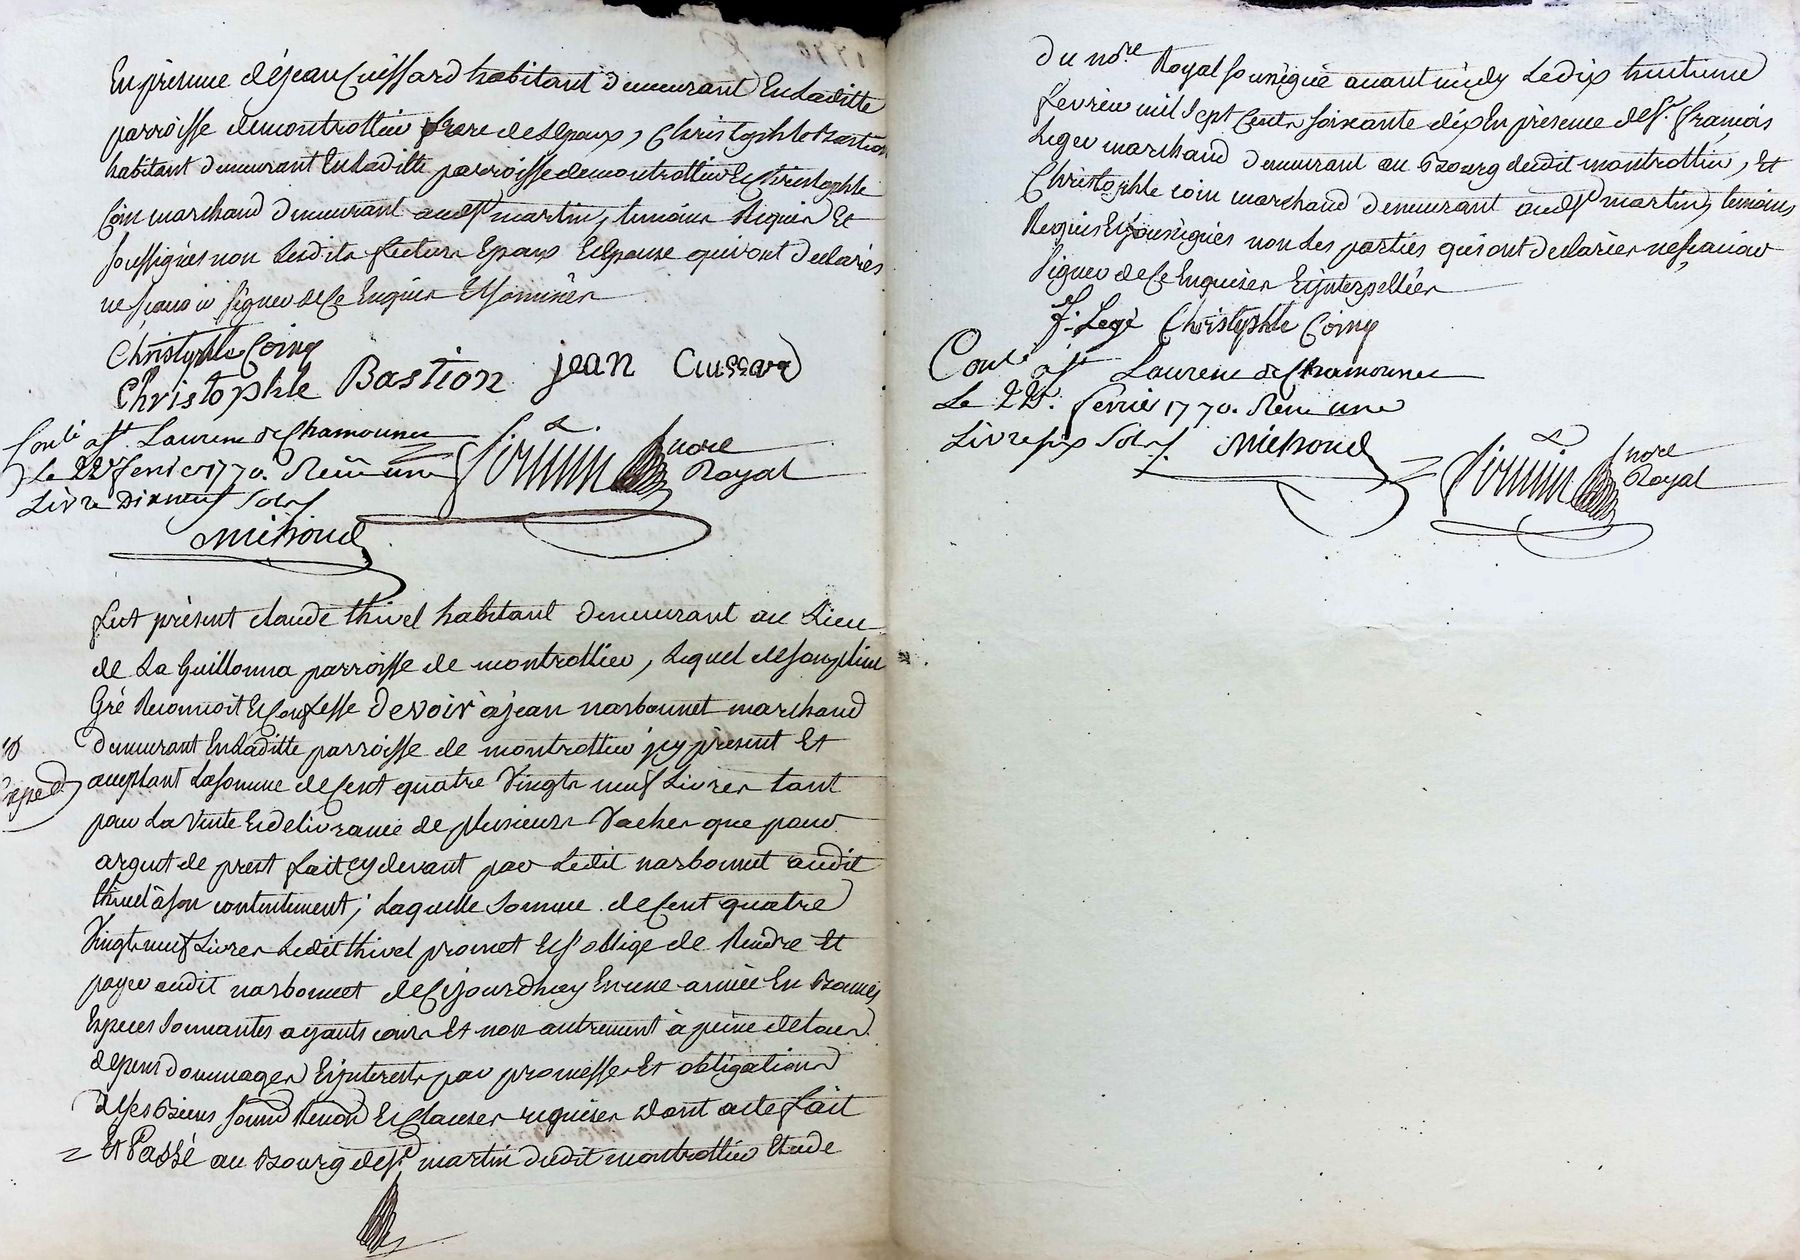 En présence de jean Cuissard habitant demeurant En Laditte
parroisse de montrottier frere de L'epaux, Christophle Bastion
habitant demeurant En Laditte parroisse de montrottier Et Christophle
Coin marchand demeurant audt. St martin, temoins Requis Et
soussignés non Lesdits futurs Epoux Et Epouse qui ont declarés
ne sçavoir signer de Ce Enquis Et sommés
Christophle Coing
Christophle Bastion jean Cussard
Conlé a St. Laurent de Chamousset
Le 22 fevrier 1770. Reçu une
Livre Dixneuf Sols
michoud
firmin nore
Royal
fut présent claude thivel habitant demeurant au Lieu
de La Guillonna parroisse de montrottier, Lequel de son plein
Gré Reconnoit Et Confesse devoir à jean narbonnet marchand
demeurant En Laditte parroisse de montrottier jcy présent Et
acceptant La somme de Cent quatre Vingts neuf Livres tant
pour La Vente Et delivrance de plusieurs Vaches que pour
argent de prest fait cydevant par Ledit narbonnet audit
thivel à son contentement; Laquelle somme de Cent quatre
Vingt neuf Livres Ledit thivel promet Et s'oblige de Rendre Et
payer audit narbonnet de Cejourdhuy En une année En Bonnes
Especes sonnantes ayants cours Et non autrement à peine de tous
depens dommages Et jnterests par promesses Et obligations
de ses Biens soums Renon Et Clauses requises dont acte fait
Et Passé au Bourg de St. martin dudit montrottier Etude
exped
du nore. Royal sousigné avant midy Le dix huitieme
fevrier mil sept Cents soixante dix En présence de sr. françois
Leger marchand demeurant au Bourg dudit montrottier, Et
Christophle coin marchand demeurant audt St martin, temoins
Requis Et sousignés non Les parties qui ont declarées ne sçavoir
signer de Ce Enquises Et jnterpellées
f. Legé Christophle Coing
Conlé a St Laurent de Chamousset
Le 22. fevrier 1770. Reçu une
Livre six Sols
michoud
firmin nore
Royal